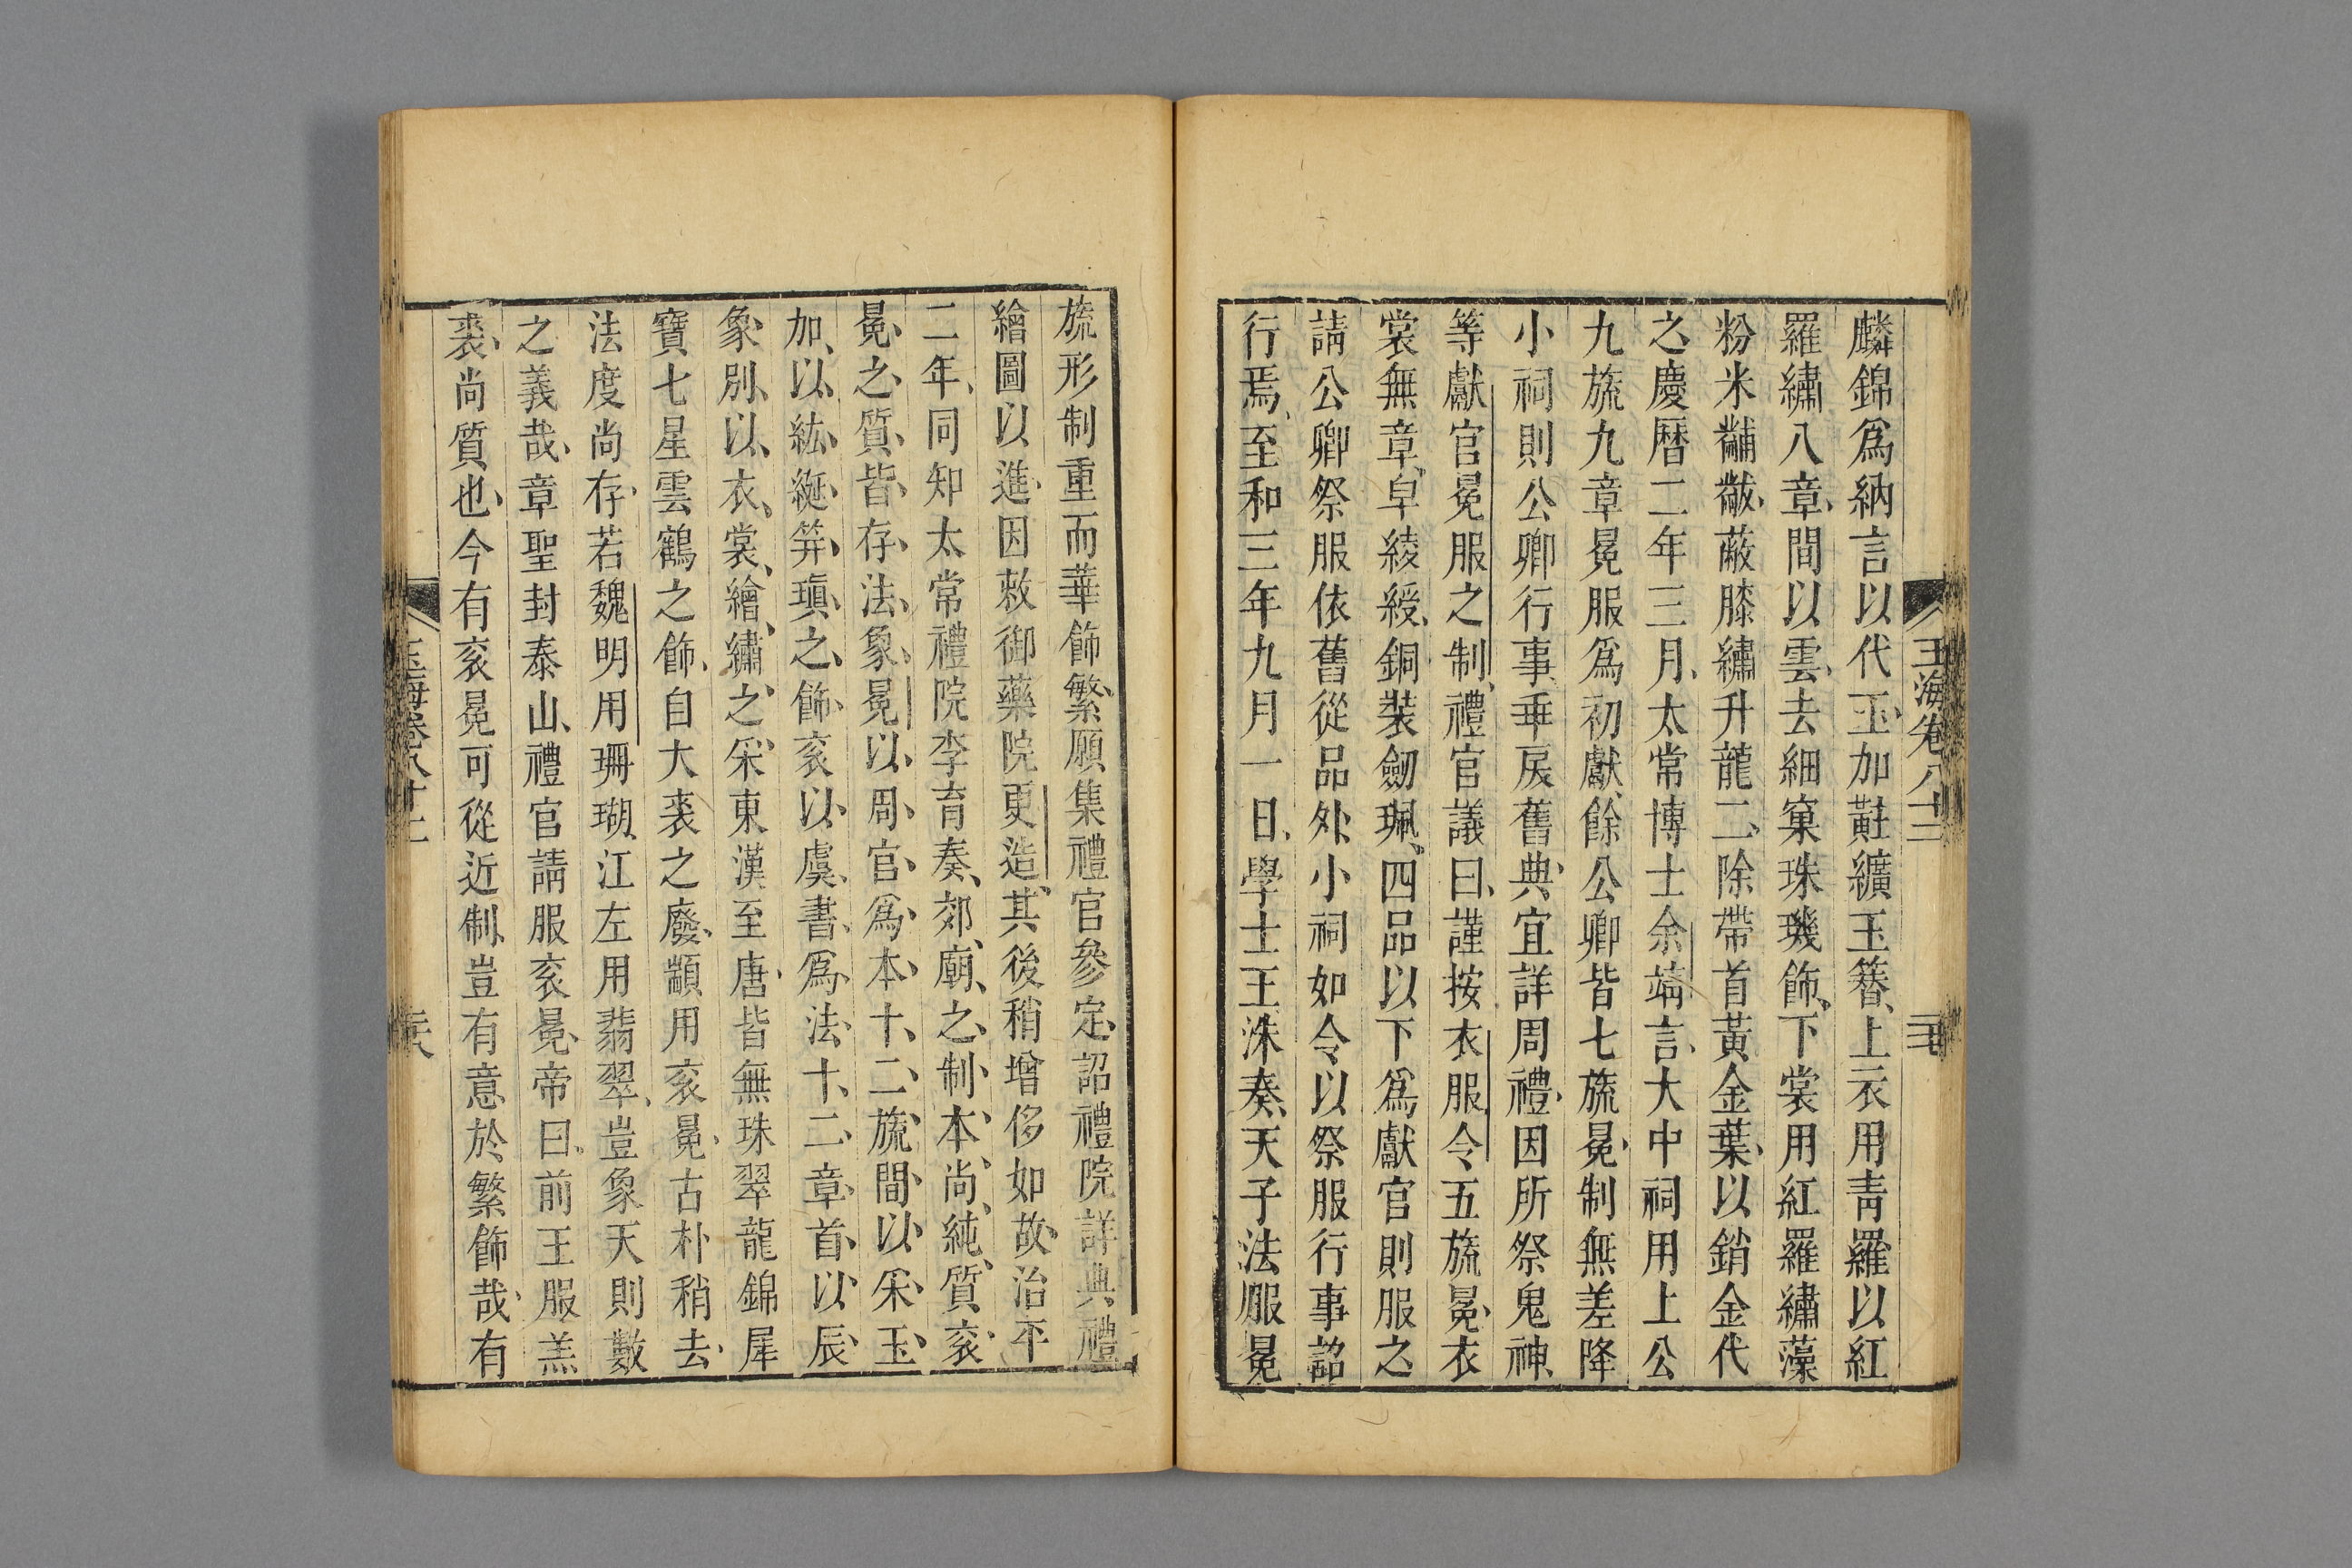 麟錦爲納言以代玉加黈纊玉簪上衣用青羅以紅
羅繡八章間以雲去細窠珠璣飾下裳用紅羅繡藻
粉米黼黻蔽膝繡升龍二除帶首黃金葉以銷金代
之慶曆二年三月太常博士余靖言大中祠用上公
九旒九章冕服爲初獻餘公卿皆七旒冕制無差降
小祠則公卿行事乖戾舊典宜詳周禮因所祭鬼神
等獻官冕服之制禮官議曰謹按衣服令五旒冕衣
裳無章皁綾綬銅裝劒珮四品以下爲獻官則服之
請公卿祭服依舊從品外小祠如令以祭服行事詔
行焉至和三年九月一日學士王洙奏天子法服冕
玉海卷八十二
旒形制重而華飾繁願集禮官參定詔禮院詳典禮
繪圖以進因敕御藥院更造其後稍增侈如故治平
二年同知太常禮院李育奏郊廟之制本尚純質衮
冕之質皆存法象冕以周官爲本十二旒間以采玉
加以紘綖笄瑱之飾衮以虞書爲法十二章首以辰
象別以衣裳繪繡之采東漢至唐皆無珠翠龍錦犀
寶七星雲鶴之飾自大裘之廢顓用衮冕古朴稍去
法度尚存若魏明用珊瑚江左用翡翠豈象天則數
之義哉章聖封泰山禮官請服衮冕帝曰前王服羔
裘尚質也今有衮冕可從近制豈有意於繁飾哉有
玉海卷八十二